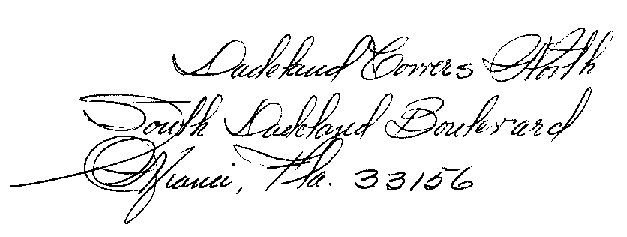 Dadeland Towers North
South Dadeland Boulevard
Miami, Fla. 33156